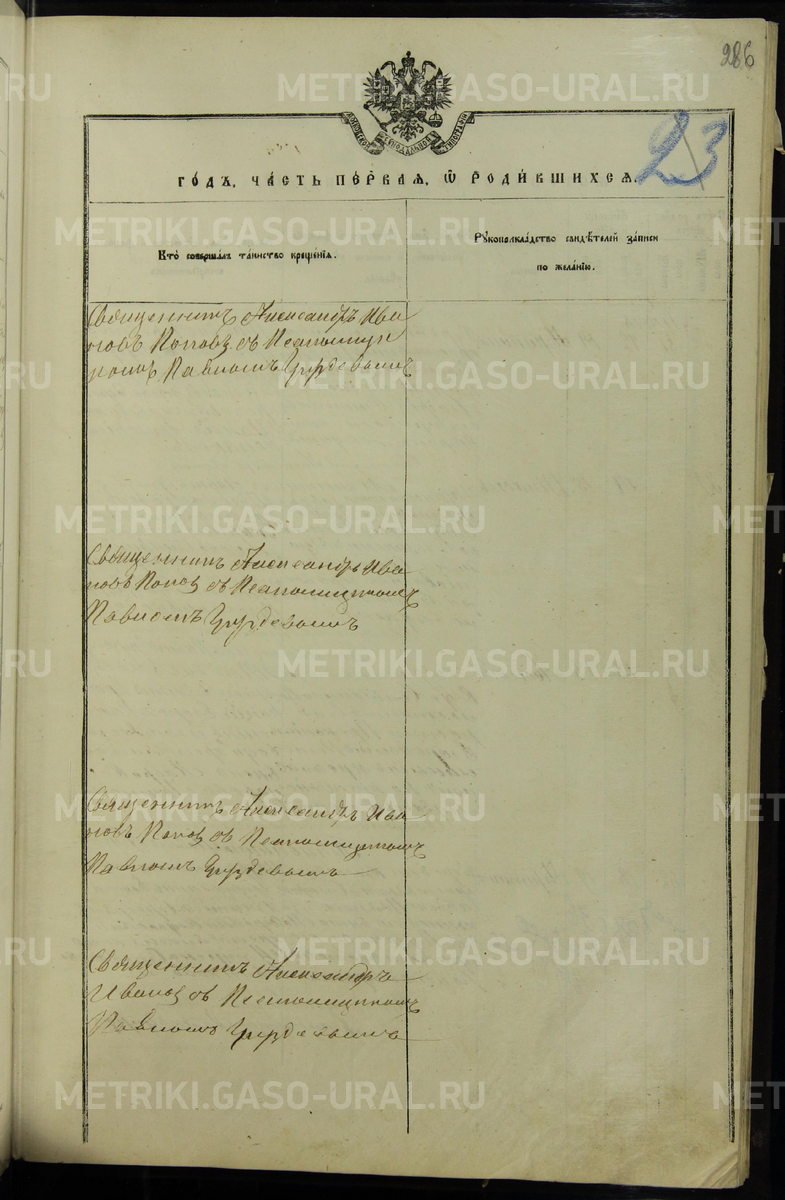 286
23
ГО́ДЪ, ЧА́СТЬ ПЕ́РВАЯ, Ѡ РОДИ́ВШИХСЯ.
Кто̀ соверша́лъ та́инство креще́нїя.
Рꙋкоприкла́дство свидѣ́телей за́писи
по жела́нїю.
Священникъ Александръ Ива
новъ Поповъ съ Псаломщи
комъ Павломъ
Священникъ Александръ Ива
новъ Поповъ съ Псаломщикомъ
Павломъ
Священникъ Александръ Ива
новъ Поповъ съ Псаломщикомъ
Павломъ
Священникъ Александръ
Ивановъ съ Псаломщикомъ
Павломъ
METRIKI.GASO-URAL.RU